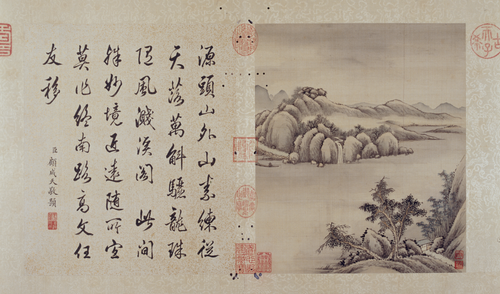 源頭山外山素練從
天落萬斛驪龍珠
隨風濺溪閣此間
殊妙境遠隨所
莫作終南路高文任
友移
臣顧成天敬題